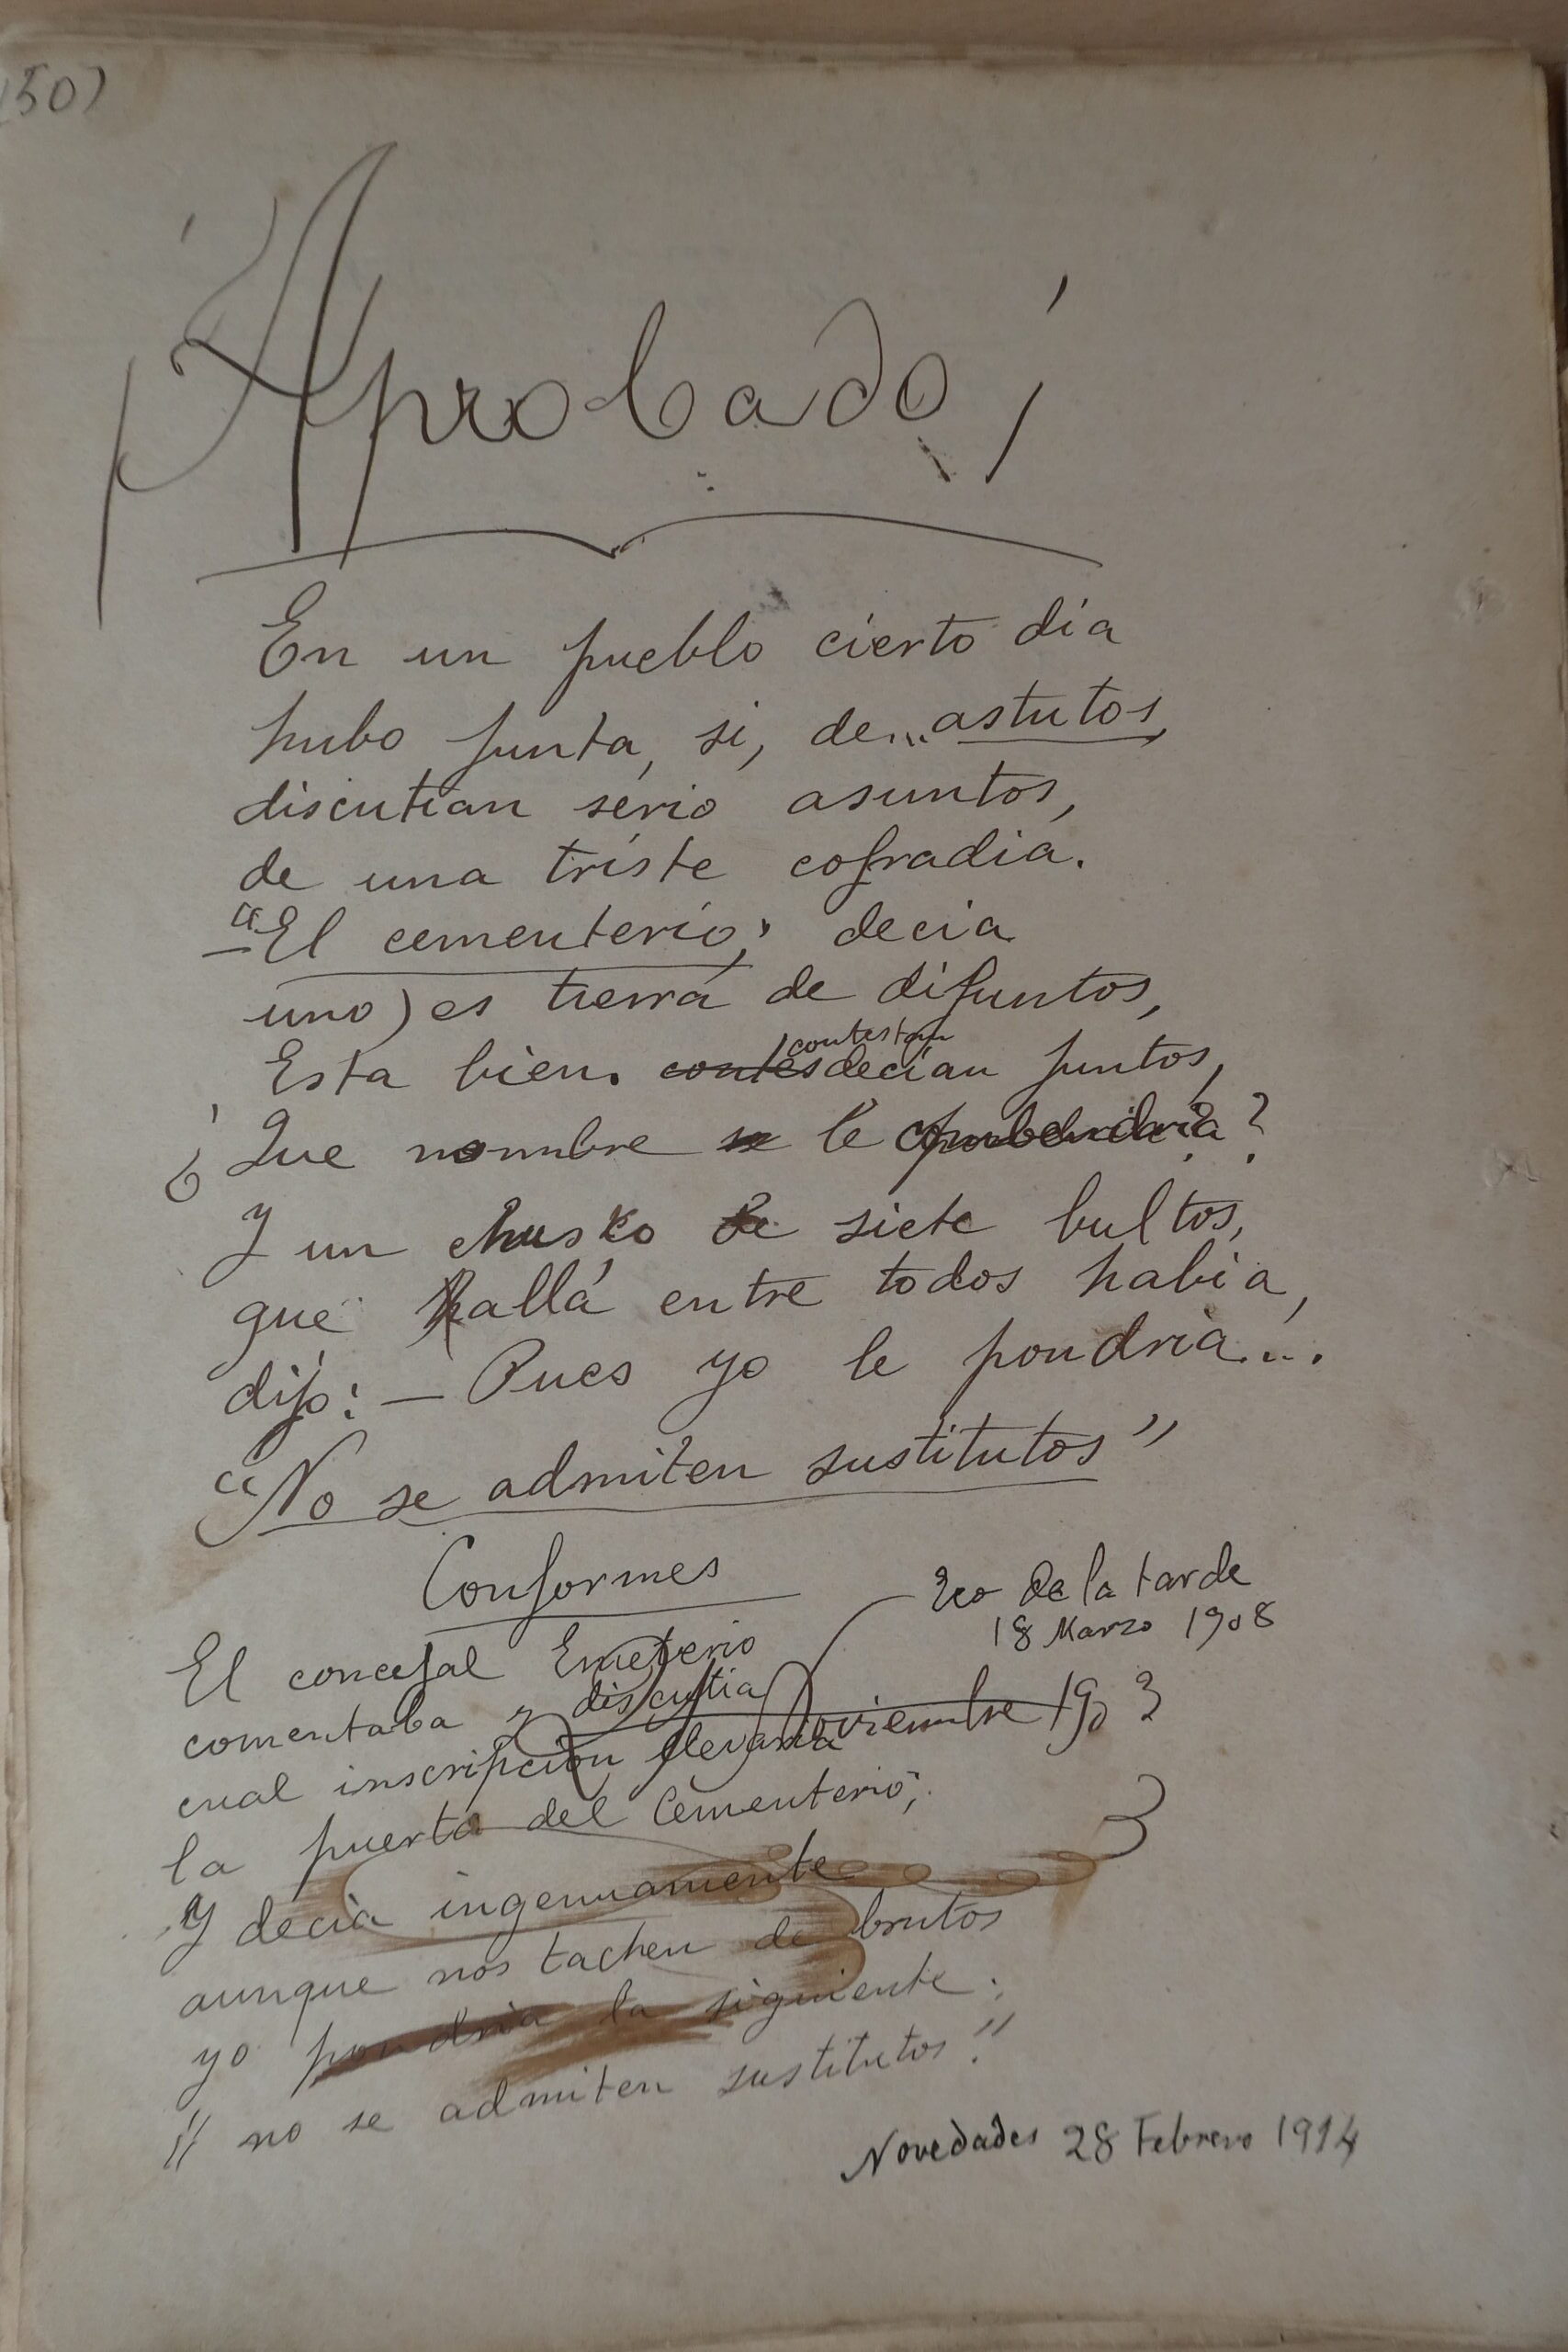 (50)
¡Aprobado!
En un pueblo cierto dia
hubo junta, si, de... astutos,
discutian sério asuntos,
de una triste cofradia.
— "El cementerio," decia
uno) es tierra de difuntos,
contestan
Esta bien. contes decían juntos,
¿ Que nombre se le
Y un chusko de siete bultos,
que hallá entre todos habia,
dijo: — Pues yo le pondria...
"No se admiten sustitutos"
Conformes
Eco de la tarde
18 Marzo 1908
El concejal Emeterio
comentaba y discutia
noviembre 1903
cual inscripción llevaria
la puerta del Cementerio;
Y decia ingenuamente
aunque nos tachen de brutos
yo pondria la siguiente:
" no se admiten sustitutos."
Novedades 28 Febrero 1914